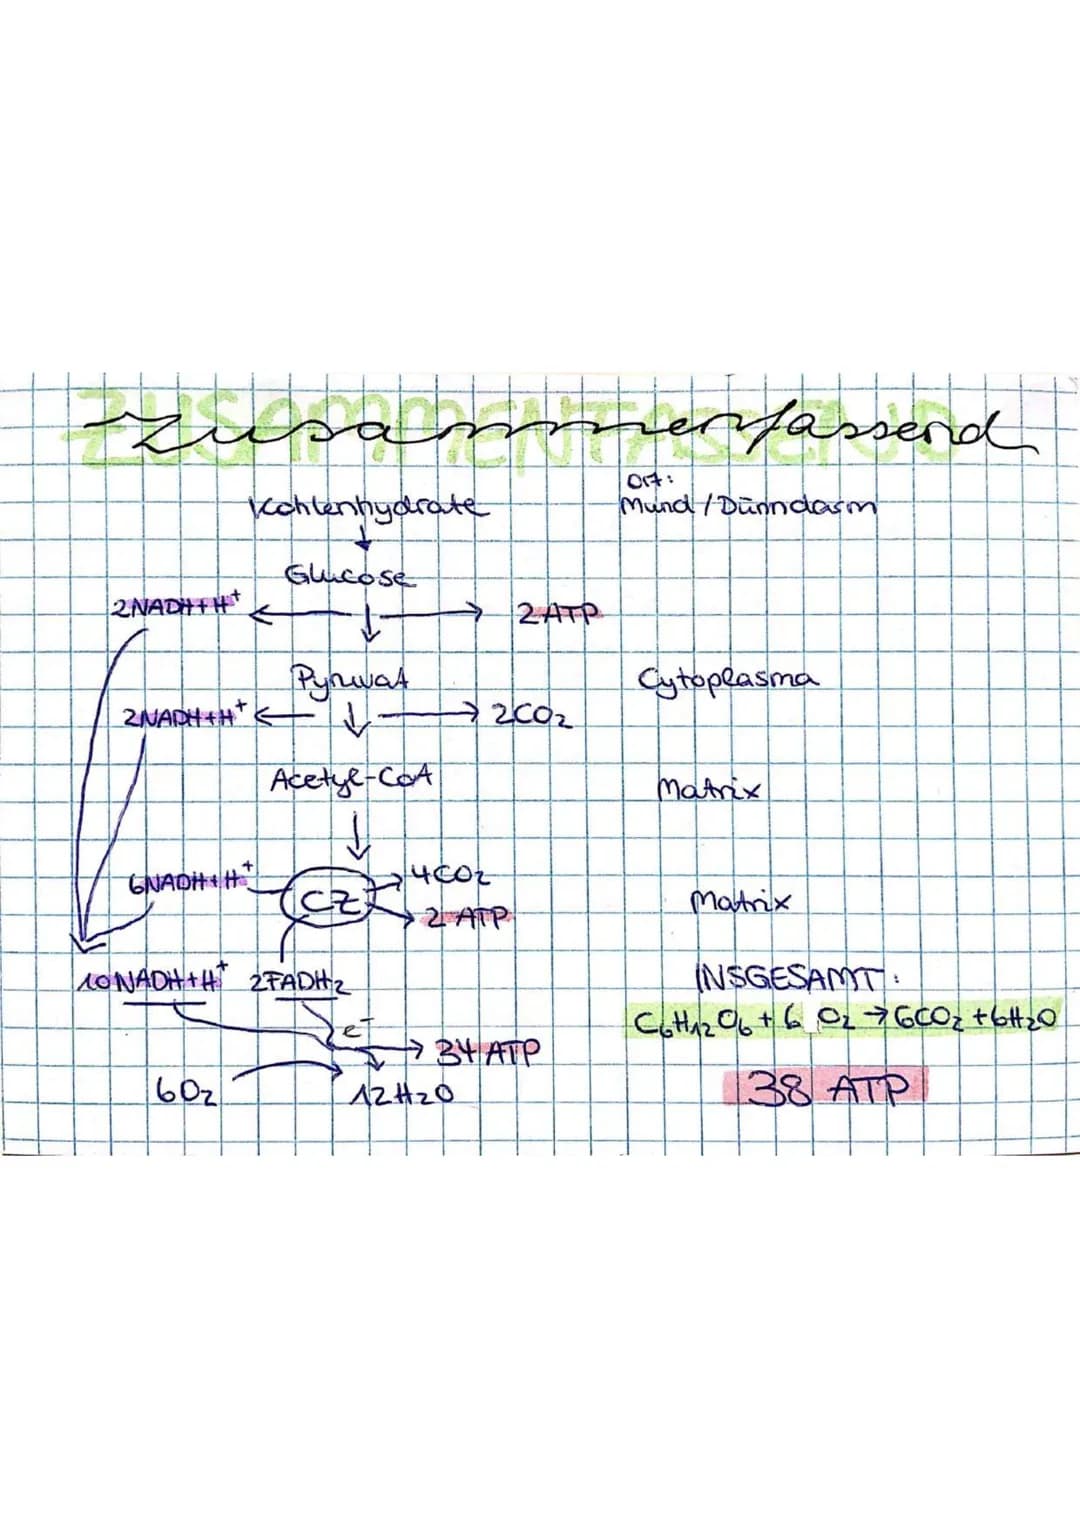 ZUSAMMENFASSEND
Zusammenfassend
Ort:
Kohlenhydrate Mund / Dünndarm
Glucose
2NADH+H⁺ 2 ATP
Pyruvat Cytoplasma
2NADH+H⁺ 2CO₂
Acetyl-CoA Matrix
6NADH+H⁺ CZ 4CO₂
2 ATP Matrix
10NADH+H⁺ 2FADH₂ INSGESAMT:
e⁻ C₆H₁₂O₆ + 6 O₂ → 6CO₂ + 6H₂O
34 ATP
6O₂ 12H₂O 38 ATP